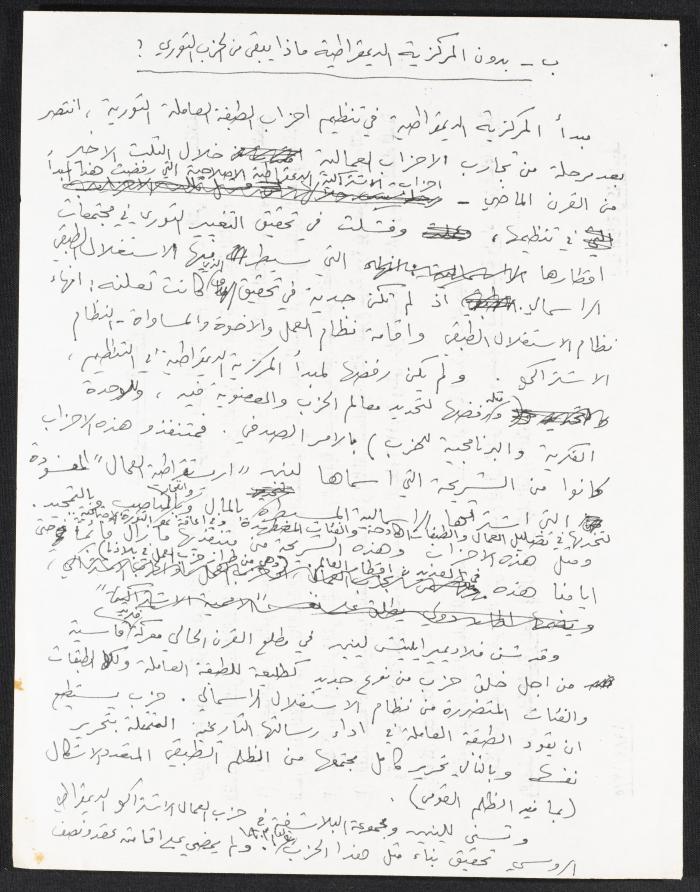 ب - بدون المركزية الديمقراطية ماذا يبقى من الحزب الثوري ؟
مبدأ المركزية الديمقراطية في تنظيم احزاب الطبقة العاملة الثورية ، انتصر
بعد مرحلة من تجارب الاحزاب العمالية خلال الثلث الاخير
من القرن الماضي - احزاب الاشتراكية الديمقراطية الاصلاحية التي رفضت هذا المبدأ
في تنظيمها ، وفشلت في تحقيق التغيير الثوري في مجتمعات
اقطارها التي سيطر فيها الاستغلال الطبقي
الراسمالي اذ لم تكن جدية في تحقيق ما كانت تعلنه : انهاء
نظام الاستغلال الطبقي واقامة نظام العمل والاخوة والمساواة - النظام
الاشتراكي . ولم يكن رفضها لمبدأ المركزية الديمقراطية في التنظيم ،
ورفضها لتحديد معالم الحزب والعضوية فيه ، وللوحدة
الفكرية والبرنامجية للحزب ) بالامر الصدفي . فمتنفذو هذه الاحزاب
كانوا من الشريحة التي اسماها لينين " ارستقراطية العمال "
التي اشترتها الراسمالية المسيطرة بالمال وبالمناصب وبالتمجيد .
ومثل هذه الاحزاب وهذه الشريحة من متنفذيها ما زال قائما حتى
ايامنا هذه في العديد من اقطار العالم
وقد شن فلاديمير ايليتش لينين في مطلع القرن الحالي معركة قاسية
من اجل خلق حزب من نوع جديد كطليعة للطبقة العاملة ولكل الطبقات
والفئات المتضررة من نظام الاستغلال الراسمالي . حزب يستطيع
ان يقود الطبقة العاملة في اداء رسالتها التاريخية المتمثلة بتحرير
نفسها وبالتالي تحرير كامل مجتمعها من الظلم الطبقي المتعدد الاشكال
( بما فيه الظلم القومي ) .
وتسنى للينين ومجموعة البلاشفة في حزب العمال الاشتراكي الديمقراطي
الروسي تحقيق بناء مثل هذا الحزب . ولم يمض على اقامته عقد ونصف